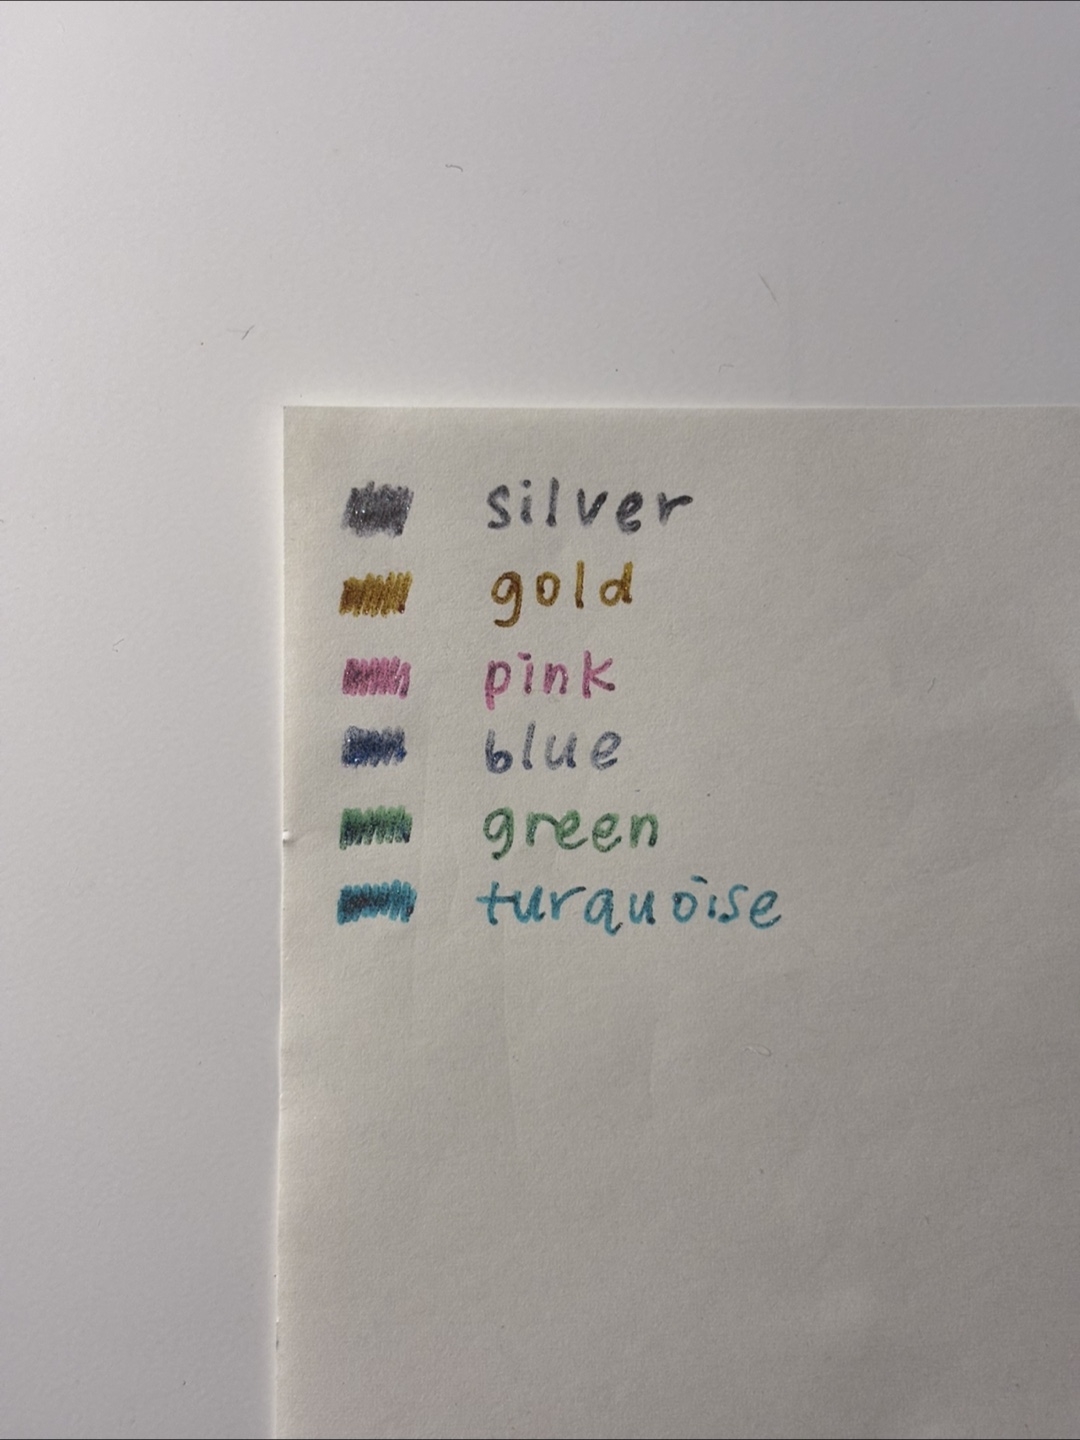 silver
gold
pink
blue
green
turquoise